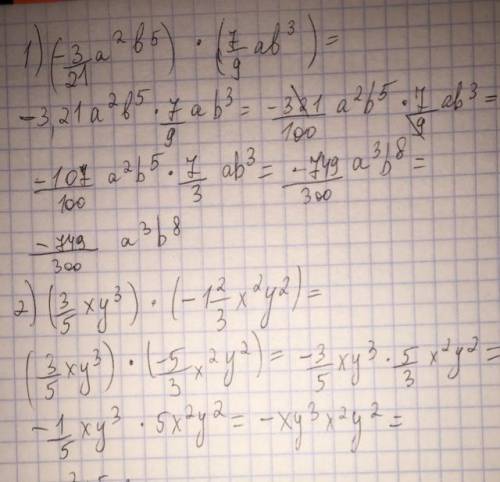 1) (-3/21 a²b⁵) · (7/9 ab³) =
-3,21a²b⁵ · 7/9 ab³ = -321/100 a²b⁵ · 7/9 ab³ =
-107/100 a²b⁵ · 7/3 ab³ = -749/300 a³b⁸ =
-749/300 a³b⁸
2) (3/5 xy³) · (-1 2/3 x²y²) =
(3/5 xy³) · (-5/3 x²y²) = -3/5 xy³ · 5/3 x²y² =
-1/5 xy³ · 5x²y² = -xy³x²y² =